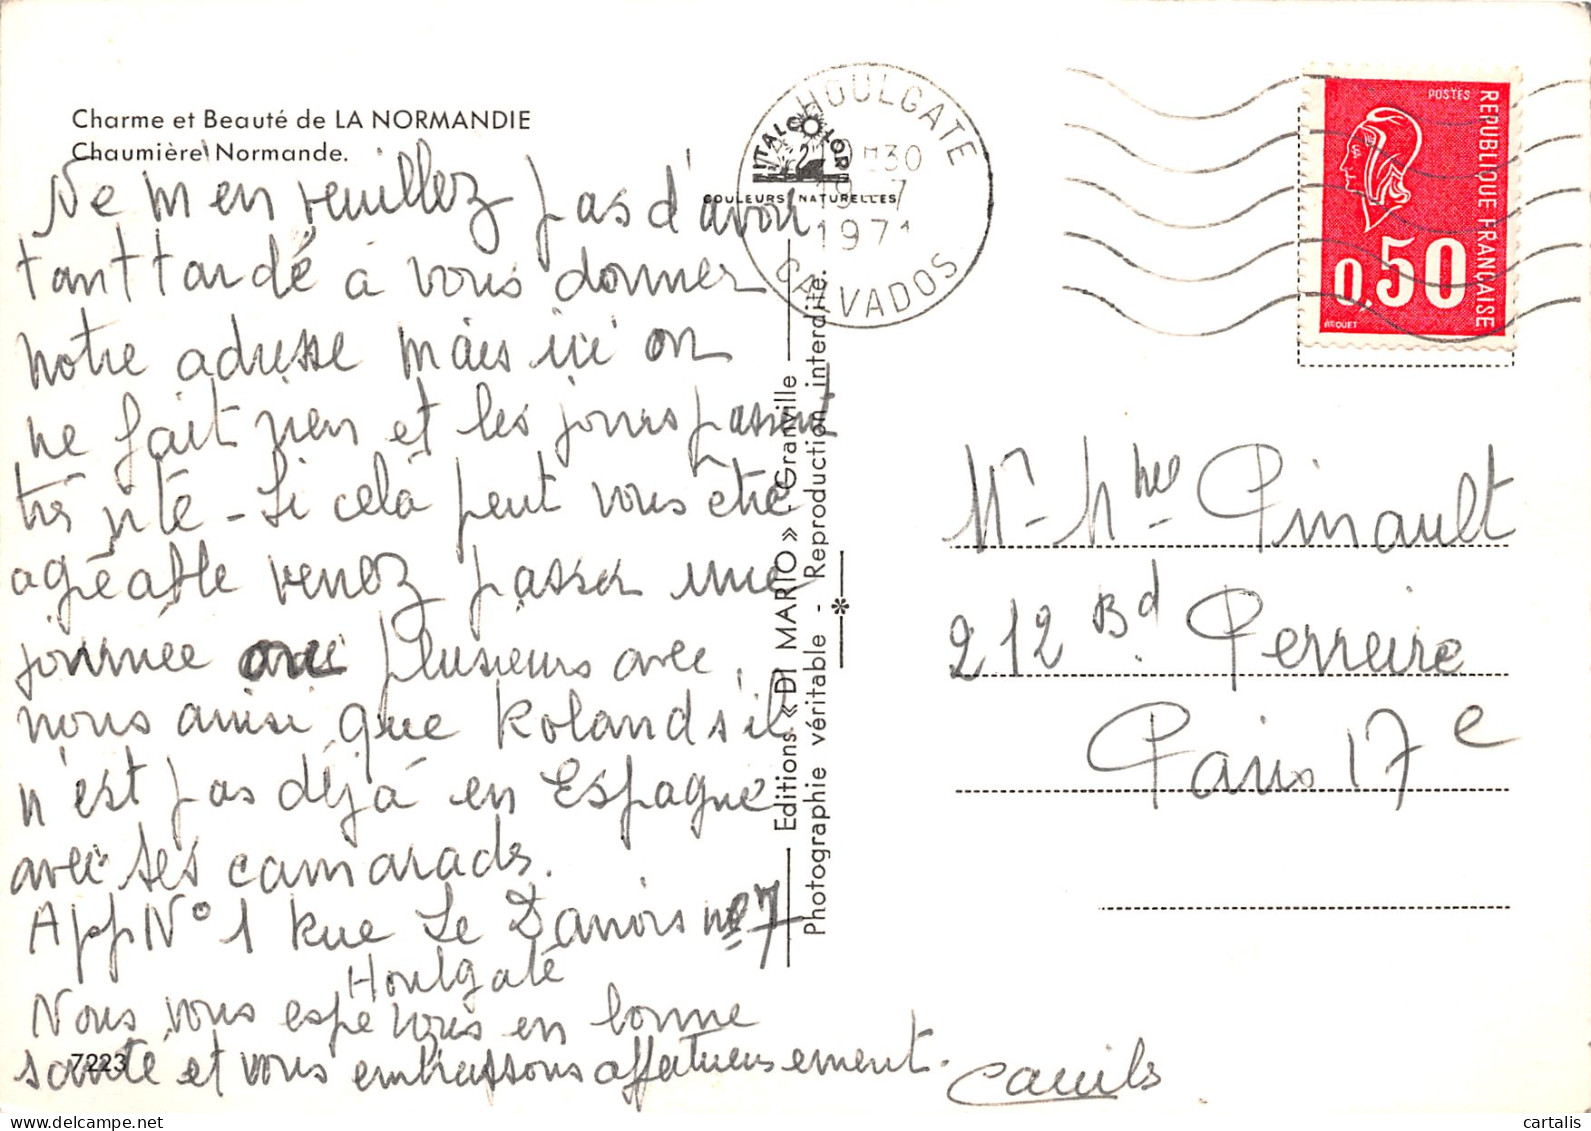 Charme et Beauté de LA NORMANDIE
Chaumière Normande.
Ne m'en veuillez pas d'avoir
tant tardé à vous donner
notre adresse mais ici on
ne fait rien et les jours passent
très vite - Si celà peut vous etre
agréable venez passer une
journée ou plusieurs avec
nous ainsi que Roland s'il
n'est pas déjà en Espagne
avec ses camarades.
App N° 1 Rue Le Danois n° 7
Houlgate
Nous vous espérons en bonne
santé et vous embrassons affectueusement.
7223
HOULGATE
H30
19-7
1971
CALVADOS
ITALCOLOR
COULEURS NATURELLES
Editions « DI MARIO » - Granville
Photographie véritable - Reproduction interdite.
POSTES
REPUBLIQUE FRANÇAISE
0,50
BEQUET
Mr - Mme Pinault
212 Bd Perreire
Paris 17e
cartalis